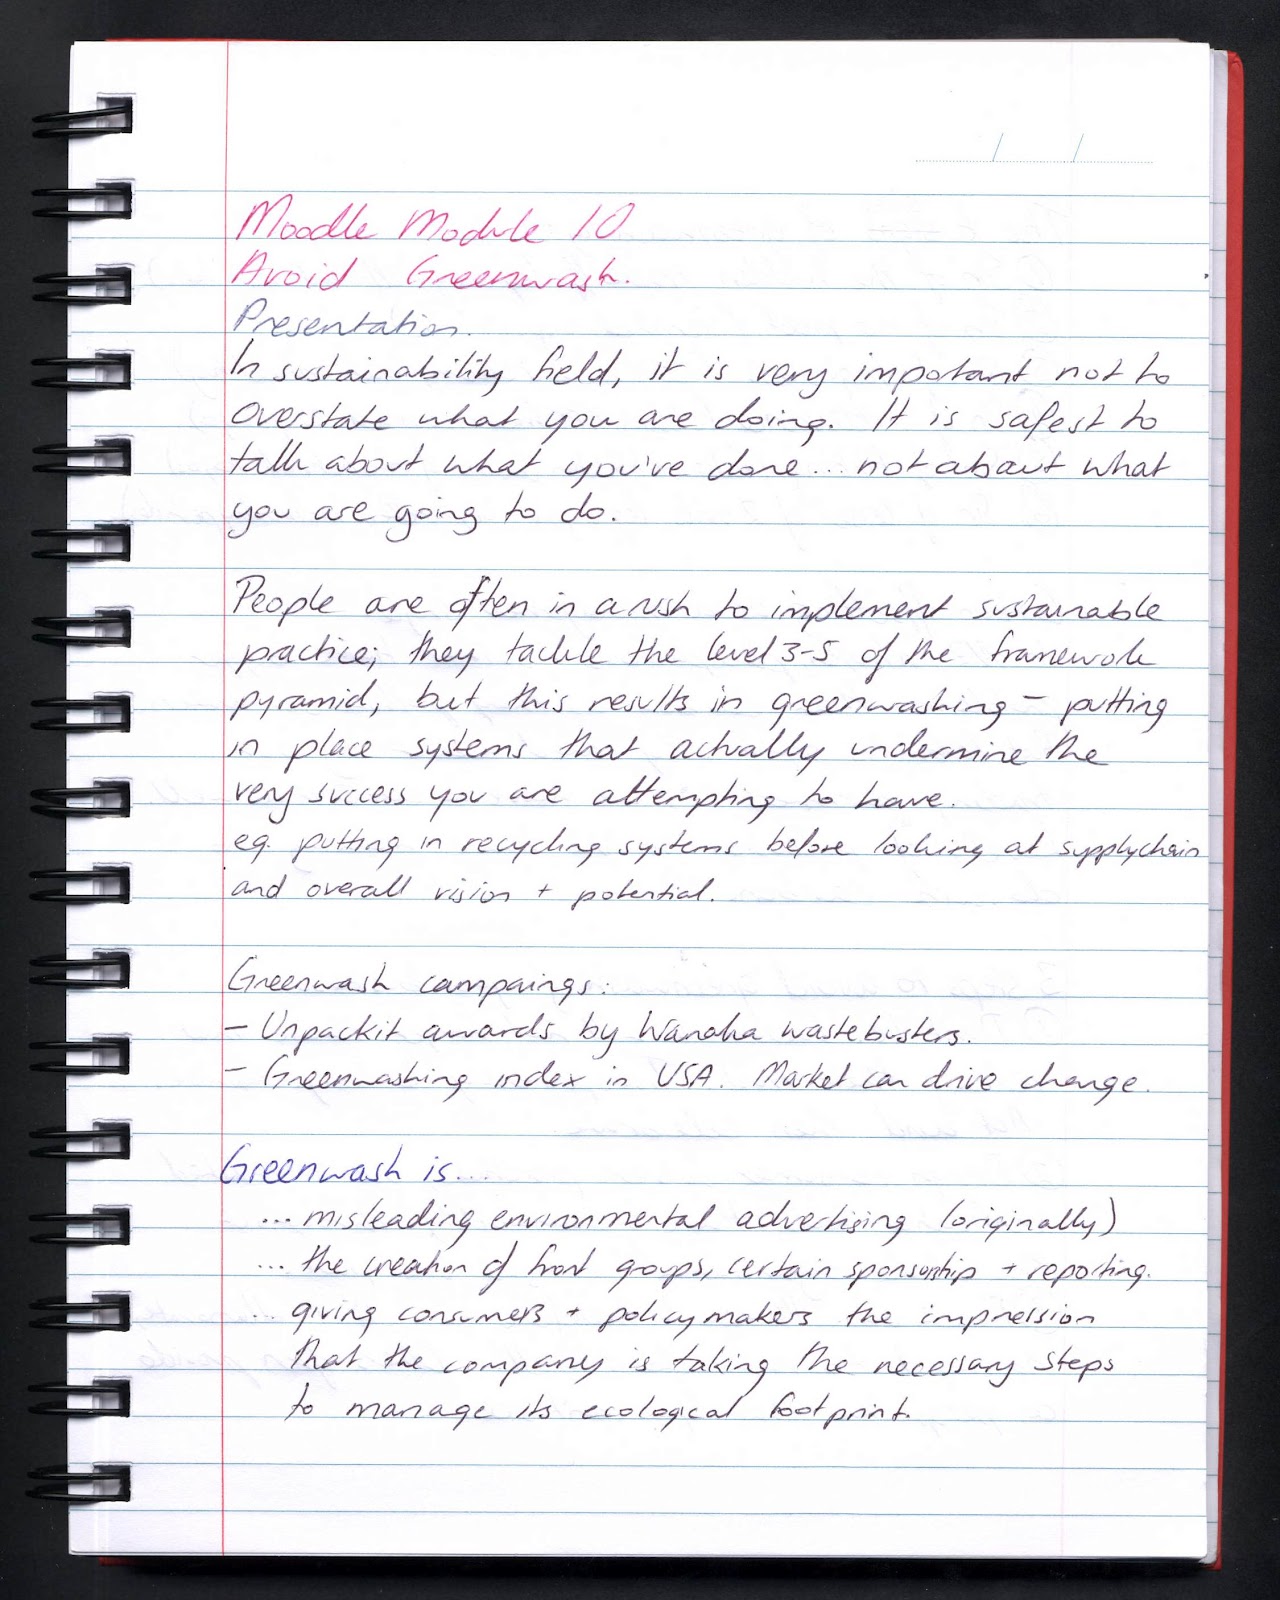 Moodle Module 10
Avoid Greenwash.
Presentation.
In sustainability field, it is very important not to
overstate what you are doing. It is safest to
talk about what you've done... not about what
you are going to do.
People are often in a rush to implement sustainable
practice; they tackle the level 3-5 of the framework
pyramid, but this results in greenwashing - putting
in place systems that actually undermine the
very success you are attempting to have.
eg. putting in recycling systems before looking at supplychain
and overall vision + potential.
Greenwash campaings:
- Unpackit awards by Wanaka wastebusters.
- Greenwashing index in USA. Market can drive change.
Greenwash is...
... misleading environmental advertising (originally)
... the creation of front groups, certain sponsorship + reporting.
... giving consumers + policymakers the impression
that the company is taking the necessary steps
to manage its ecological footprint.